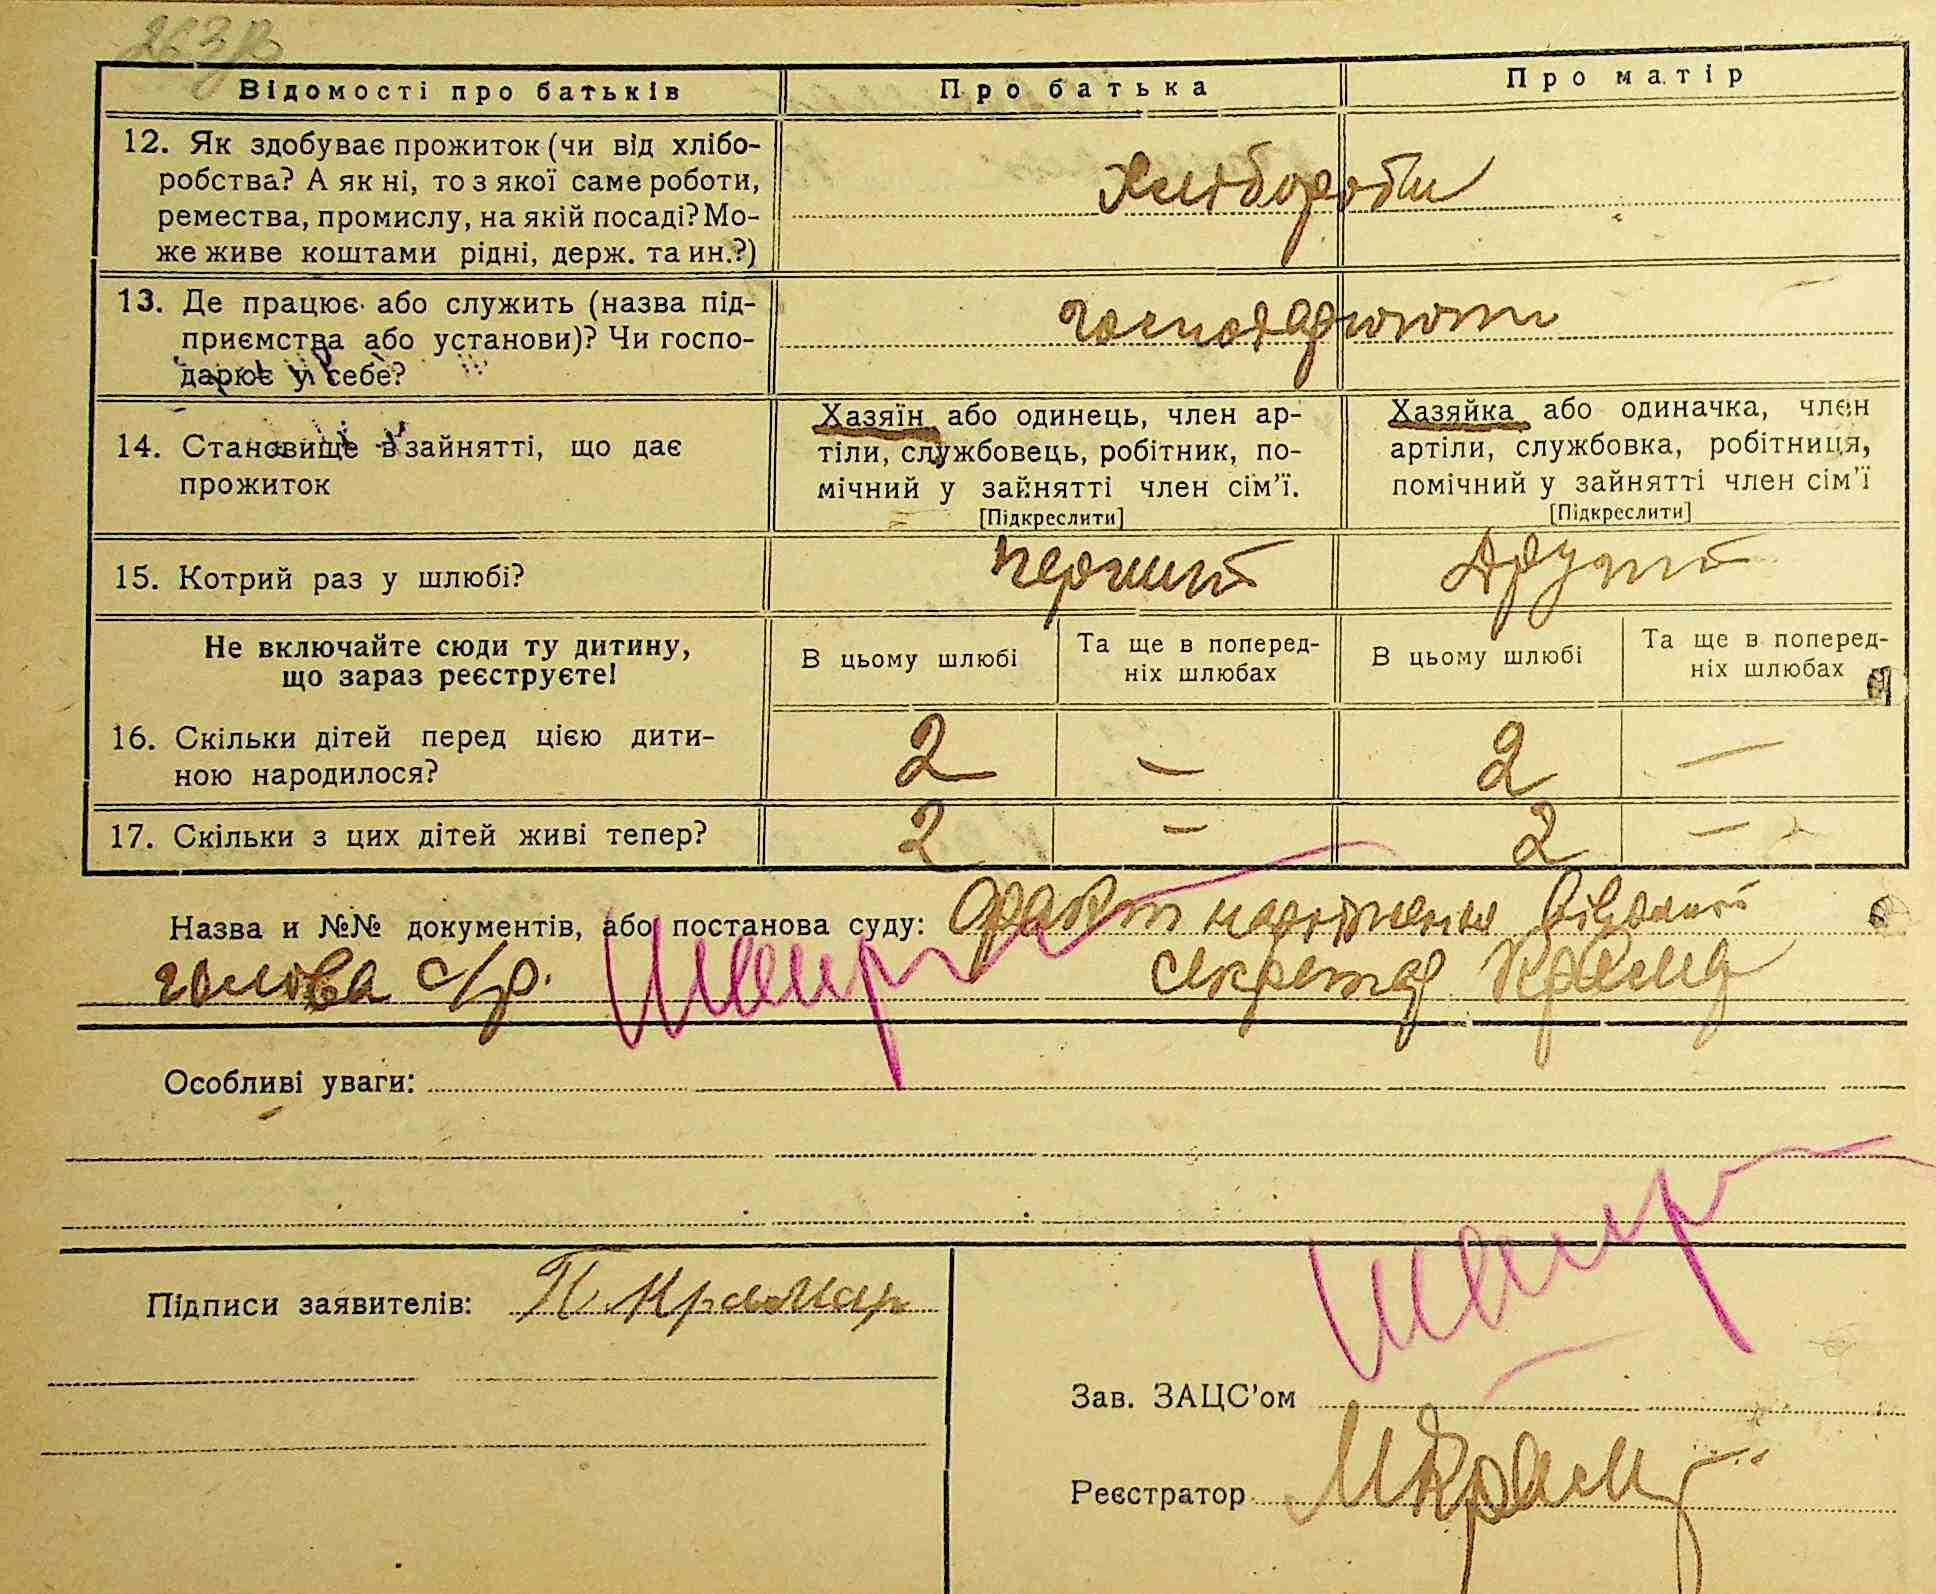 263 зв
Відомості про батьків
Про батька
Про матір
12. Як здобуває прожиток (чи від хлібо-
робства? А як ні, то з якої саме роботи,
ремества, промислу, на якій посаді? Мо-
же живе коштами рідні, держ. та ин.?)
Хлібороби
13. Де працює або служить (назва під-
приємства або установи)? Чи госпо-
дарює у себе?
господарюють
14. Становище в зайнятті, що дає
прожиток
Хазяїн або одинець, член ар-
тіли, службовець, робітник, по-
мічний у зайнятті член сім'ї.
[Підкреслити]
Хазяйка або одиначка, член
артіли, службовка, робітниця,
помічний у зайнятті член сім'ї
[Підкреслити]
15. Котрий раз у шлюбі?
перший
другий
Не включайте сюди ту дитину,
що зараз реєструєте!
В цьому шлюбі
Та ще в поперед-
ніх шлюбах
В цьому шлюбі
Та ще в поперед-
ніх шлюбах
16. Скільки дітей перед цією дити-
ною народилося?
2 — 2 —
17. Скільки з цих дітей живі тепер?
2 — 2 —
Назва и №№ документів, або постанова суду: Факт народження відомий
голова с/р. секретар
Особливі уваги:
Підписи заявителів: П. Крамар
Зав. ЗАЦС'ом
Реєстратор